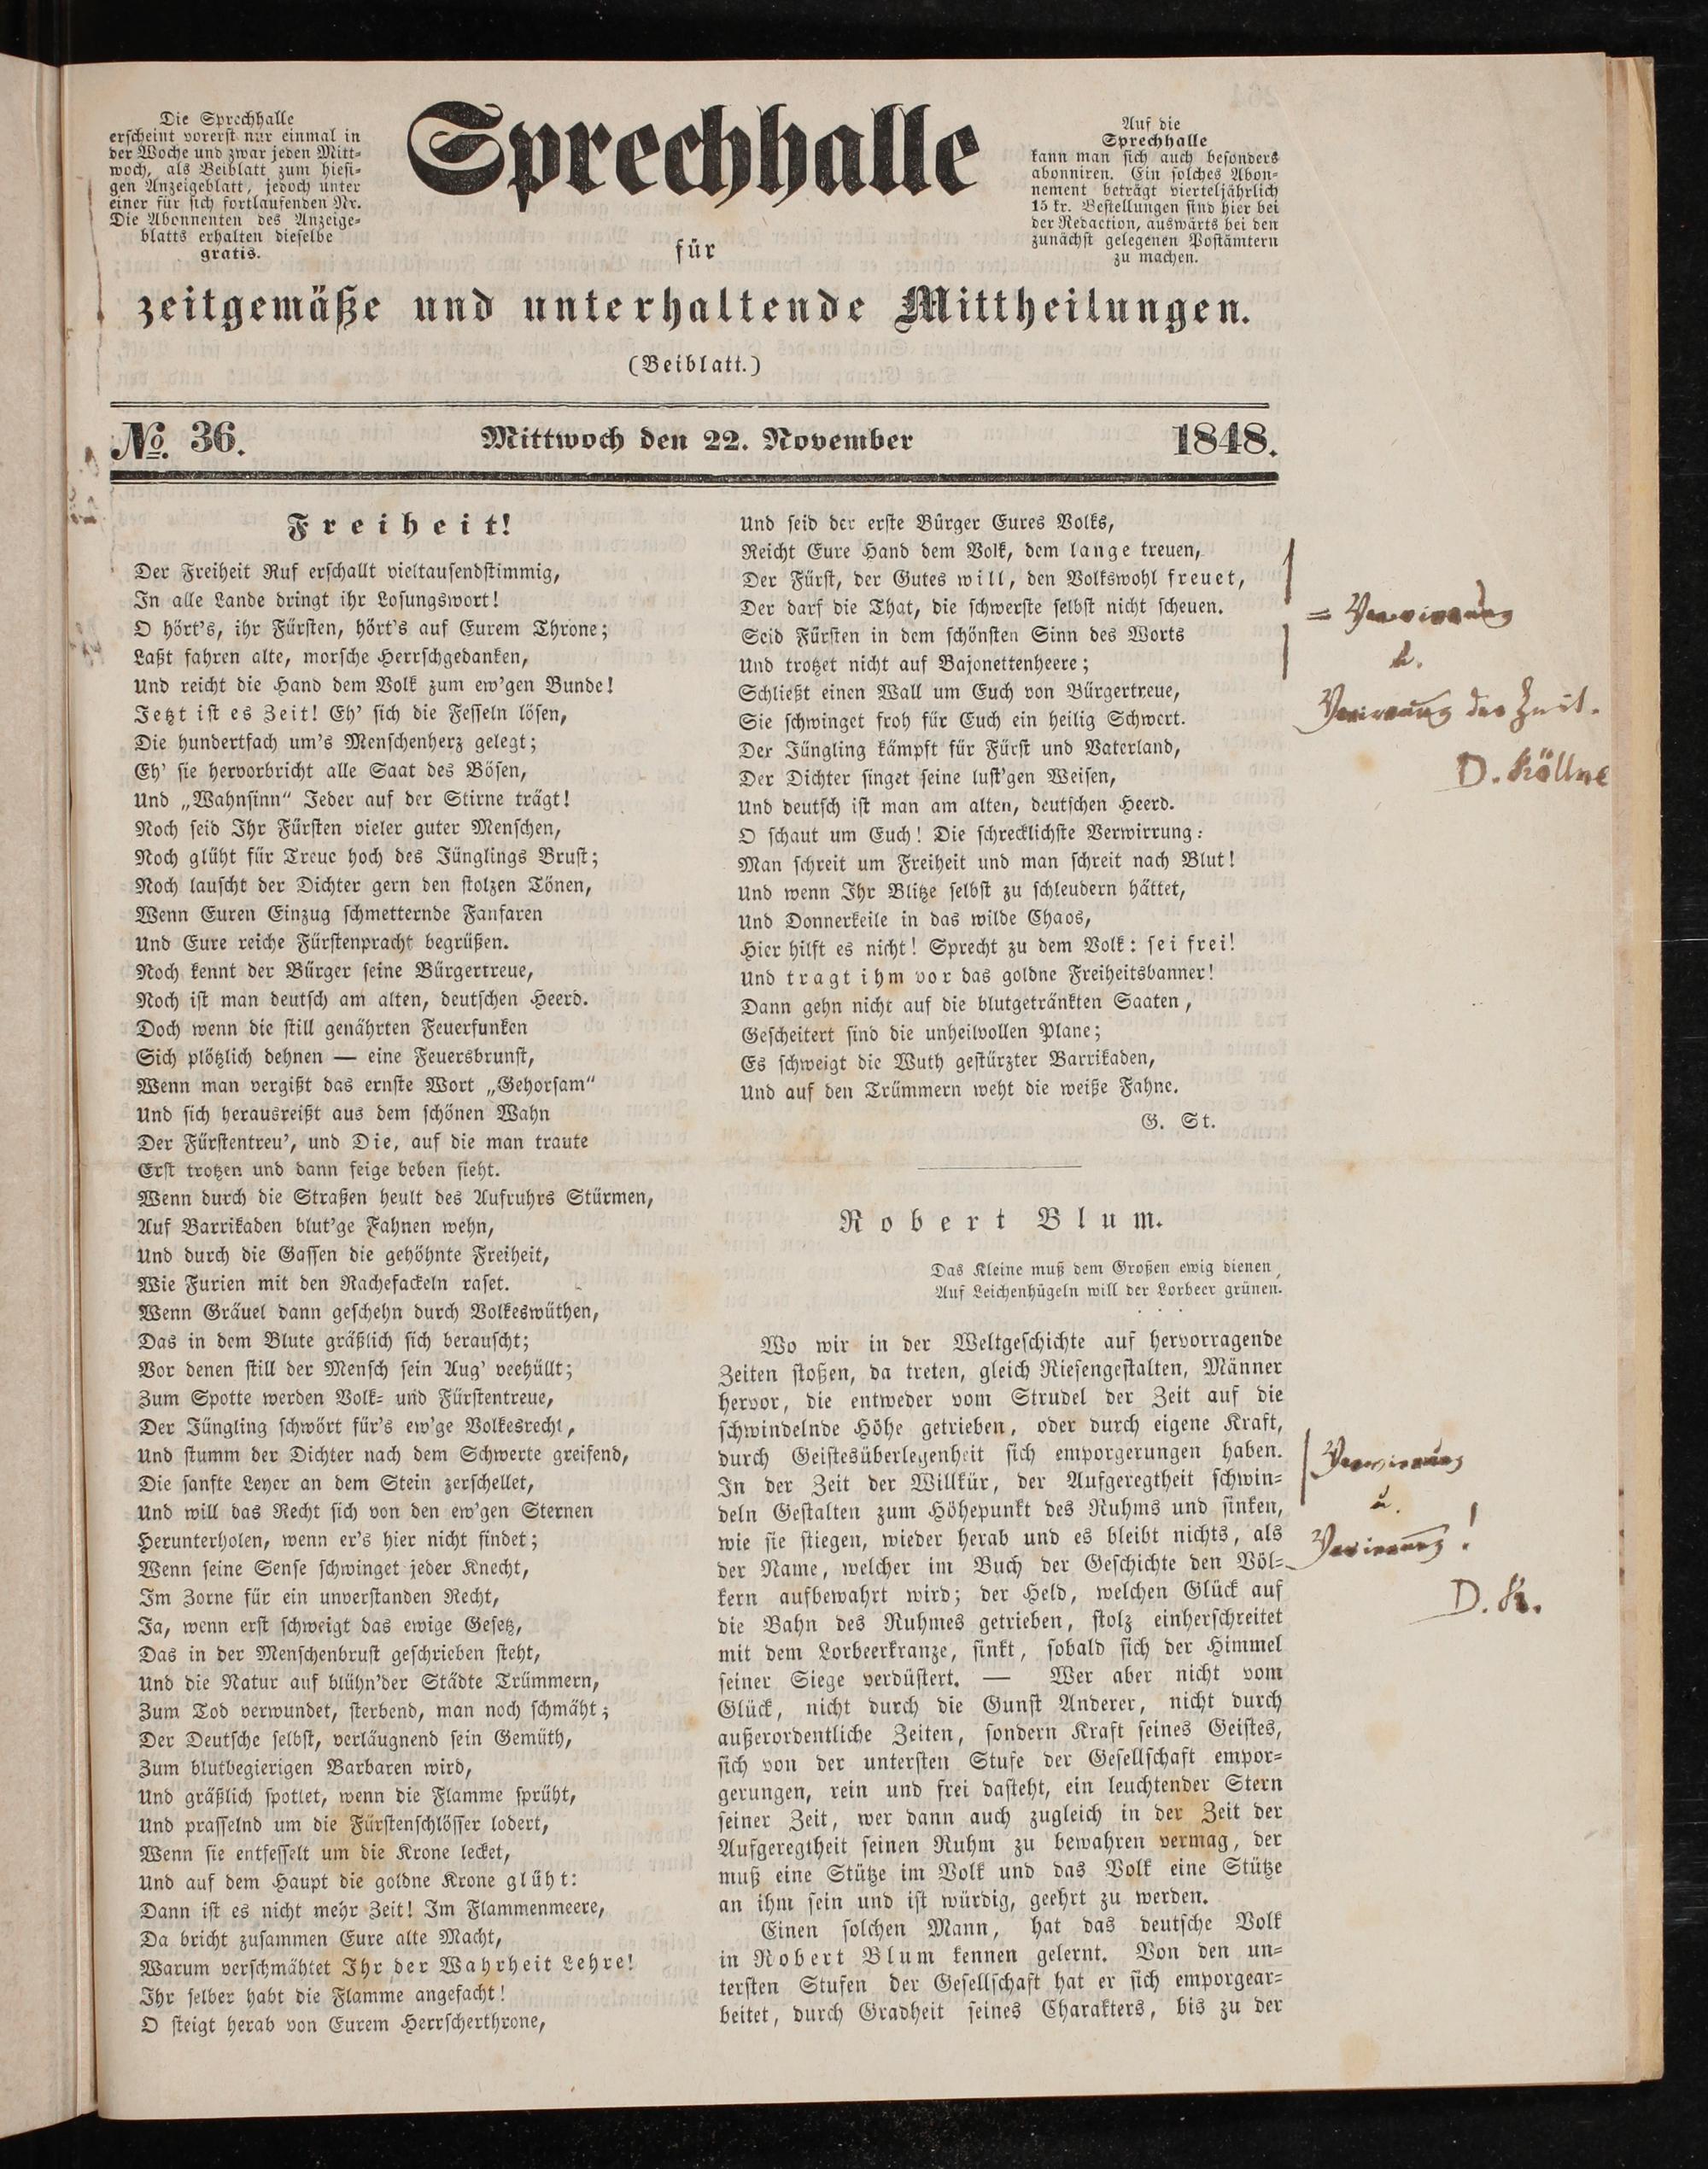 Die Sprechhalle
erscheint vorerst nur einmal in
der Woche und zwar jeden Mitt-
woch, als Beiblatt zum hiesi-
gen Anzeigeblatt, jedoch unter
einer für sich fortlaufenden Nr.
Die Abonnenten des Anzeige-
blatts erhalten dieselbe
gratis.
Sprechhalle
für
zeitgemäße und unterhaltende Mittheilungen.
(Beiblatt.)
Auf die
Sprechhalle
kann man sich auch besonders
abonniren. Ein solches Abon-
nement beträgt vierteljährlich
15 kr. Bestellungen sind hier bei
der Redaction, auswärts bei den
zunächst gelegenen Postämtern
zu machen.
No. 36. Mittwoch den 22. November 1848.
Freiheit!
Der Freiheit Ruf erschallt vieltausendstimmig,
In alle Lande dringt ihr Losungswort!
O hört's, ihr Fürsten, hört's auf Eurem Throne;
Laßt fahren alte, morsche Herrschgedanken,
Und reicht die Hand dem Volk zum ew'gen Bunde!
Jetzt ist es Zeit! Eh' sich die Fesseln lösen,
Die hundertfach um's Menschenherz gelegt;
Eh' sie hervorbricht alle Saat des Bösen,
Und „Wahnsinn“ Jeder auf der Stirne trägt!
Noch seid Ihr Fürsten vieler guter Menschen,
Noch glüht für Treue hoch des Jünglings Brust;
Noch lauscht der Dichter gern den stolzen Tönen,
Wenn Euren Einzug schmetternde Fanfaren
Und Eure reiche Fürstenpracht begrüßen.
Noch kennt der Bürger seine Bürgertreue,
Noch ist man deutsch am alten, deutschen Heerd.
Doch wenn die still genährten Feuerfunken
Sich plötzlich dehnen — eine Feuersbrunst,
Wenn man vergißt das ernste Wort „Gehorsam“
Und sich herausreißt aus dem schönen Wahn
Der Fürstentreu', und Die, auf die man traute
Erst trotzen und dann feige beben sieht.
Wenn durch die Straßen heult des Aufruhrs Stürmen,
Auf Barrikaden blut'ge Fahnen wehn,
Und durch die Gassen die gehöhnte Freiheit,
Wie Furien mit den Rachefackeln raset.
Wenn Gräuel dann geschehn durch Volkeswüthen,
Das in dem Blute gräßlich sich berauscht;
Vor denen still der Mensch sein Aug' veehüllt;
Zum Spotte werden Volk- und Fürstentreue,
Der Jüngling schwört für's ew'ge Volkesrecht,
Und stumm der Dichter nach dem Schwerte greifend,
Die sanfte Leyer an dem Stein zerschellet,
Und will das Recht sich von den ew'gen Sternen
Herunterholen, wenn er's hier nicht findet;
Wenn seine Sense schwinget jeder Knecht,
Im Zorne für ein unverstanden Recht,
Ja, wenn erst schweigt das ewige Gesetz,
Das in der Menschenbrust geschrieben steht,
Und die Natur auf blühn'der Städte Trümmern,
Zum Tod verwundet, sterbend, man noch schmäht;
Der Deutsche selbst, verläugnend sein Gemüth,
Zum blutbegierigen Barbaren wird,
Und gräßlich spottet, wenn die Flamme sprüht,
Und prasselnd um die Fürstenschlösser lodert,
Wenn sie entfesselt um die Krone lecket,
Und auf dem Haupt die goldne Krone glüht:
Dann ist es nicht mehr Zeit! Im Flammenmeere,
Da bricht zusammen Eure alte Macht,
Warum verschmähtet Ihr der Wahrheit Lehre!
Ihr selber habt die Flamme angefacht!
O steigt herab von Eurem Herrscherthrone,
Und seid der erste Bürger Eures Volks,
Reicht Eure Hand dem Volk, dem lange treuen,
Der Fürst, der Gutes will, den Volkswohl freuet,
Der darf die That, die schwerste selbst nicht scheuen.
Seid Fürsten in dem schönsten Sinn des Worts
Und trotzet nicht auf Bajonettenheere;
Schließt einen Wall um Euch von Bürgertreue,
Sie schwinget froh für Euch ein heilig Schwert.
Der Jüngling kämpft für Fürst und Vaterland,
Der Dichter singet seine lust'gen Weisen,
Und deutsch ist man am alten, deutschen Heerd.
O schaut um Euch! Die schrecklichste Verwirrung:
Man schreit um Freiheit und man schreit nach Blut!
Und wenn Ihr Blitze selbst zu schleudern hättet,
Und Donnerkeile in das wilde Chaos,
Hier hilft es nicht! Sprecht zu dem Volk: sei frei!
Und tragt ihm vor das goldne Freiheitsbanner!
Dann gehn nicht auf die blutgetränkten Saaten,
Gescheitert sind die unheilvollen Plane;
Es schweigt die Wuth gestürzter Barrikaden,
Und auf den Trümmern weht die weiße Fahne.
G. St.
Robert Blum.
Das Kleine muß dem Großen ewig dienen,
Auf Leichenhügeln will der Lorbeer grünen.
Wo wir in der Weltgeschichte auf hervorragende
Zeiten stoßen, da treten, gleich Riesengestalten, Männer
hervor, die entweder vom Strudel der Zeit auf die
schwindelnde Höhe getrieben, oder durch eigene Kraft,
durch Geistesüberlegenheit sich emporgerungen haben.
In der Zeit der Willkür, der Aufgeregtheit schwin-
deln Gestalten zum Höhepunkt des Ruhms und sinken,
wie sie stiegen, wieder herab und es bleibt nichts, als
der Name, welcher im Buch der Geschichte den Völ-
kern aufbewahrt wird; der Held, welchen Glück auf
die Bahn des Ruhmes getrieben, stolz einherschreitet
mit dem Lorbeerkranze, sinkt, sobald sich der Himmel
seiner Siege verdüstert. — Wer aber nicht vom
Glück, nicht durch die Gunst Anderer, nicht durch
außerordentliche Zeiten, sondern Kraft seines Geistes,
sich von der untersten Stufe der Gesellschaft empor-
gerungen, rein und frei dasteht, ein leuchtender Stern
seiner Zeit, wer dann auch zugleich in der Zeit der
Aufgeregtheit seinen Ruhm zu bewahren vermag, der
muß eine Stütze im Volk und das Volk eine Stütze
an ihm sein und ist würdig, geehrt zu werden.
Einen solchen Mann, hat das deutsche Volk
in Robert Blum kennen gelernt. Von den un-
tersten Stufen der Gesellschaft hat er sich emporgear-
beitet, durch Gradheit seines Charakters, bis zu der
= Verwirrung
u.
Verirrung der Zeit.
D. Köllne
Verwirrung
u.
Verirrung!
D. K.